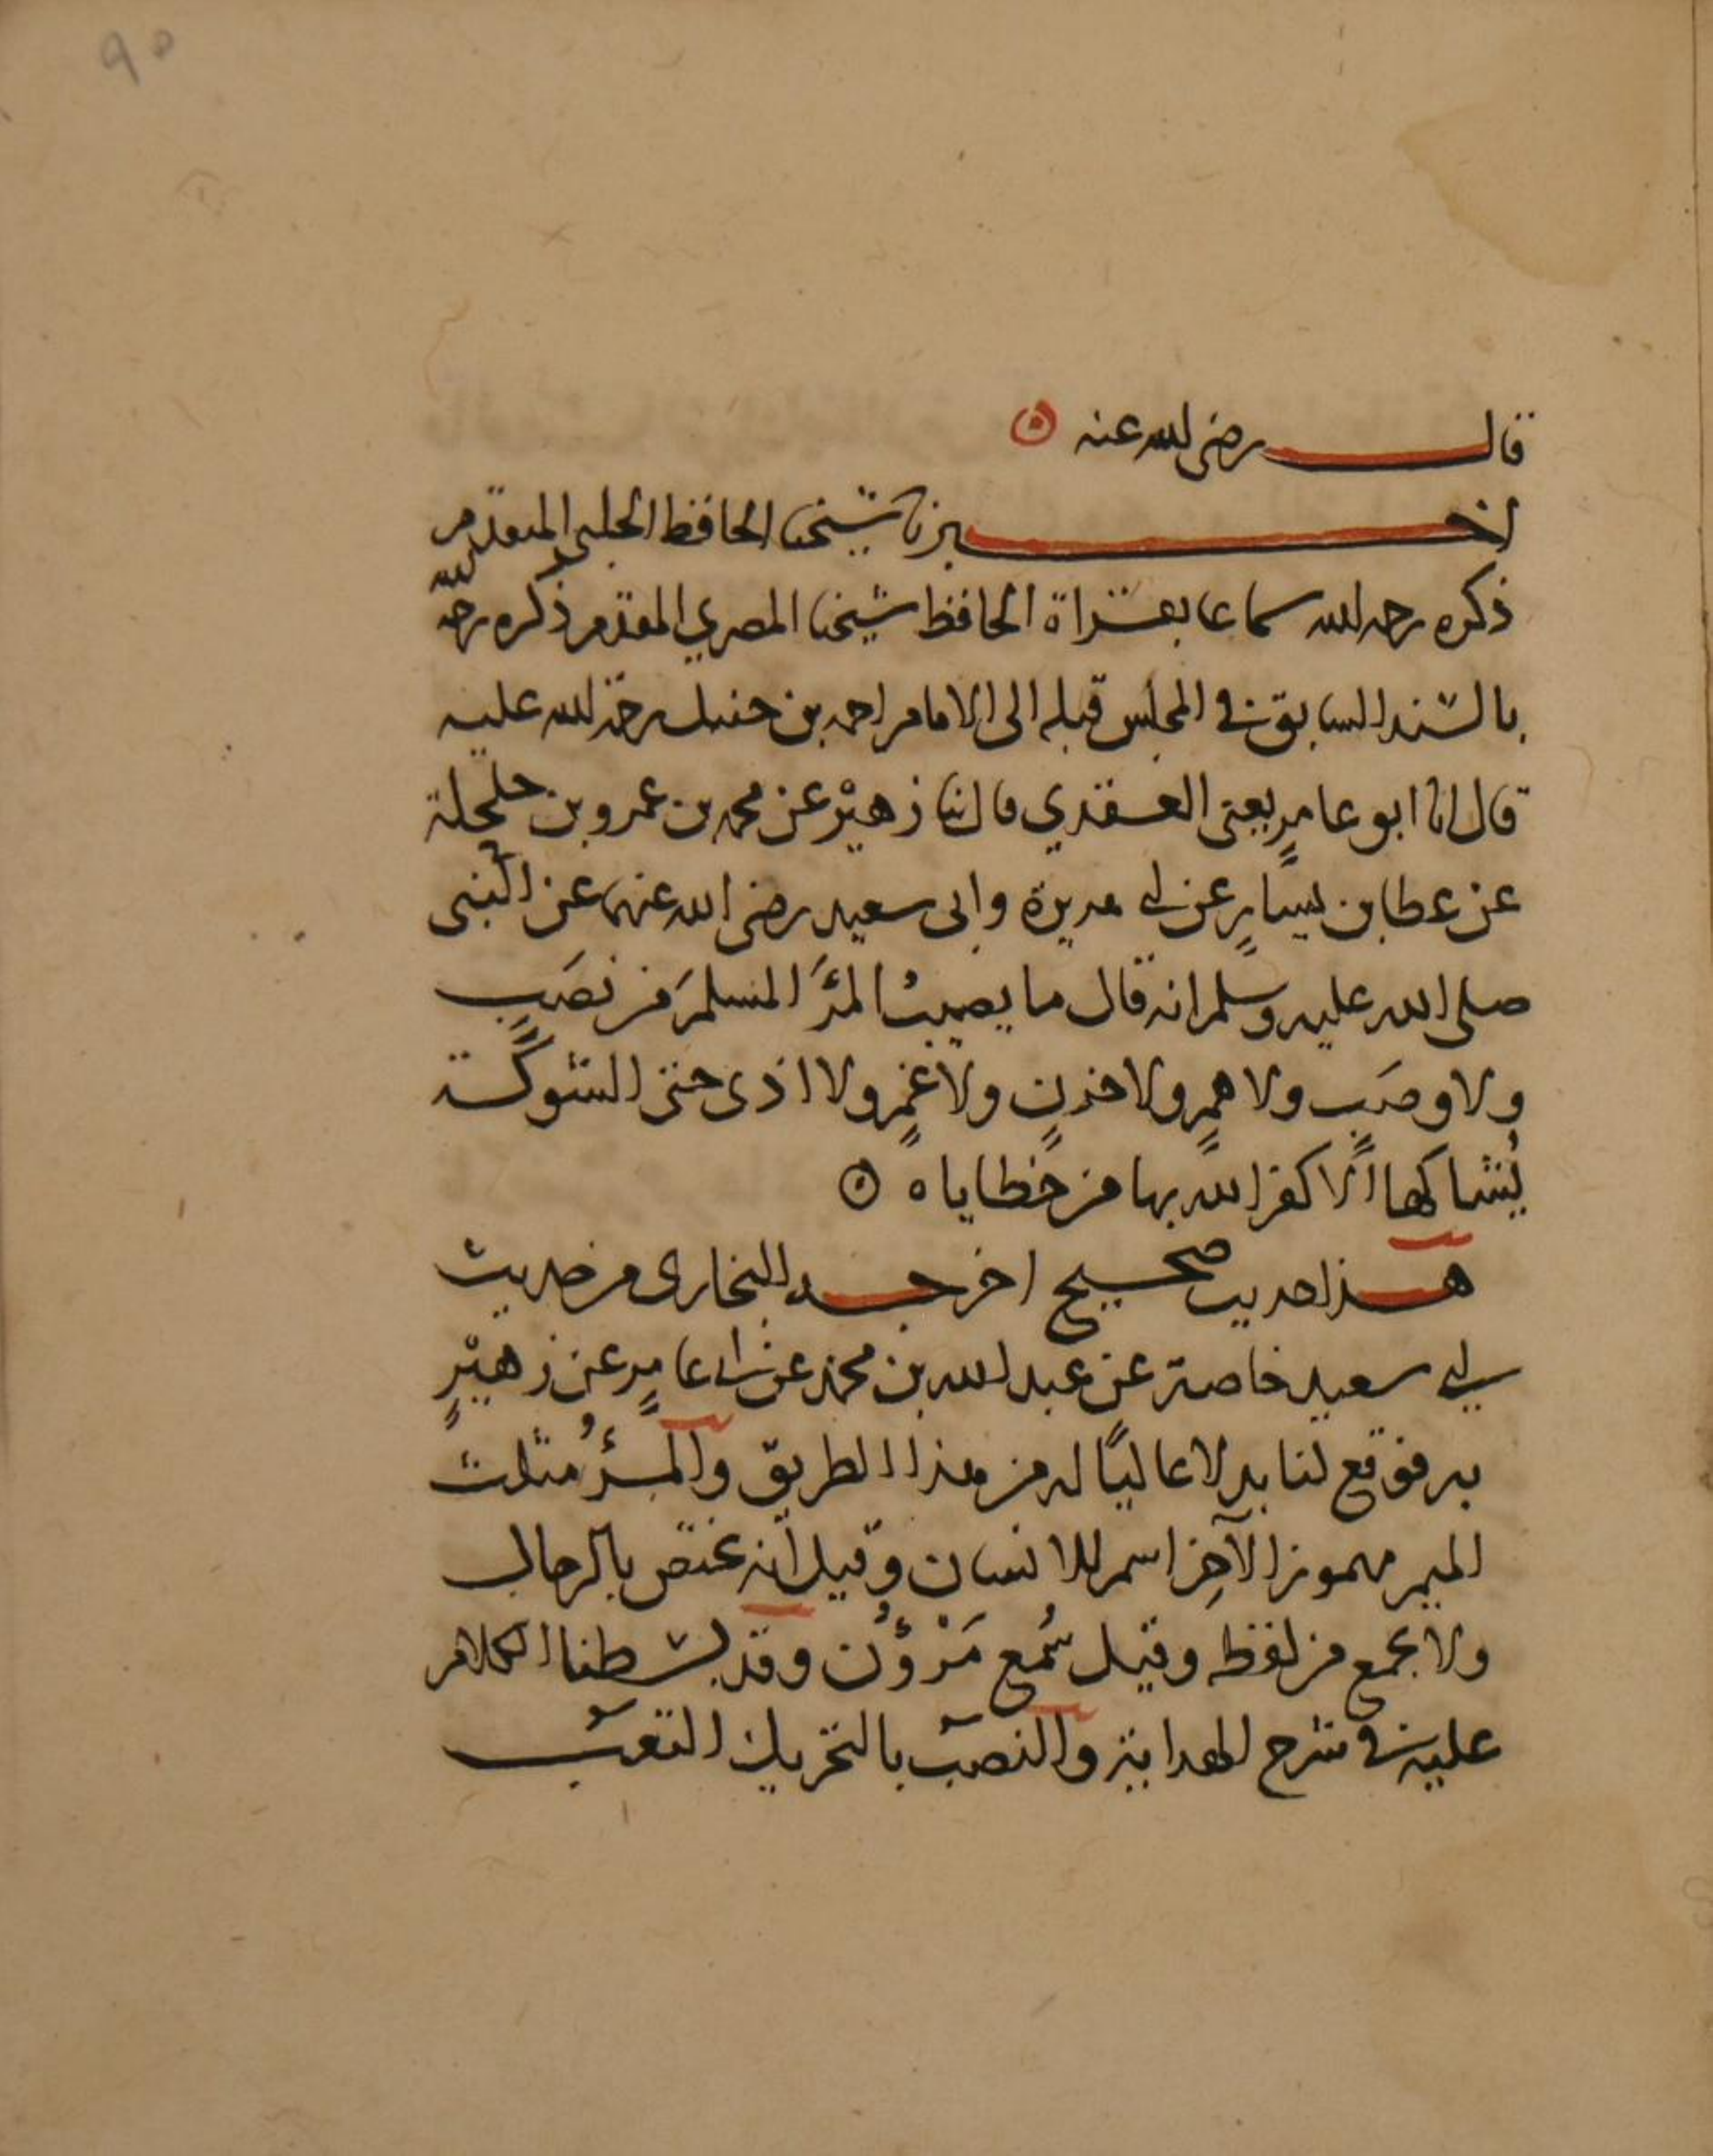 ٩٥
قال رضى الله عنه
اخبرنا شيخنا الحافظ الحلبي المتقدم
ذكره رحمه الله سماعا بقراة الحافظ شيخنا المصري المقدم ذكره رحمه الله
بالسند السابق في المجلس قبله الى الامام احمد بن حنبل رحمة الله عليه
قال انا ابو عامرٍ يعنى العقدي قال ثنا زهيْر عن محمد بن عمرو بن حلحلة
عن عطا بن يسارٍ عن ابى هريرة وابى سعيد رضى الله عنهما عن النبى
صلى الله عليه وسلم انه قال ما يصيبُ المرَْٔ المسلمَ من نصَبٍ
ولا وصَبٍ ولا همٍ ولا حزنٍ ولا غمٍ ولا اذى حتى الشوكة
يُشاكها الّا كفر الله بها من خطاياه
هذا حديث صحيح اخرجه البخارى من حديث
ابى سعيد خاصة عن عبد الله بن محمد عن ابى عامرٍ عن زهيْرٍ
به فوقع لنا بدلا عاليًا له من هذا الطريق والمرْؤُ مثلث
الميم مهموز الآخِر اسم للانسان وقيل انه يختص بالرجال
ولا يجمع من لفظه وقيل سُمع مَرْؤُن وقد بسطنا الكلام
عليه في شرح الهداية والنصَب بالتحريك التعب